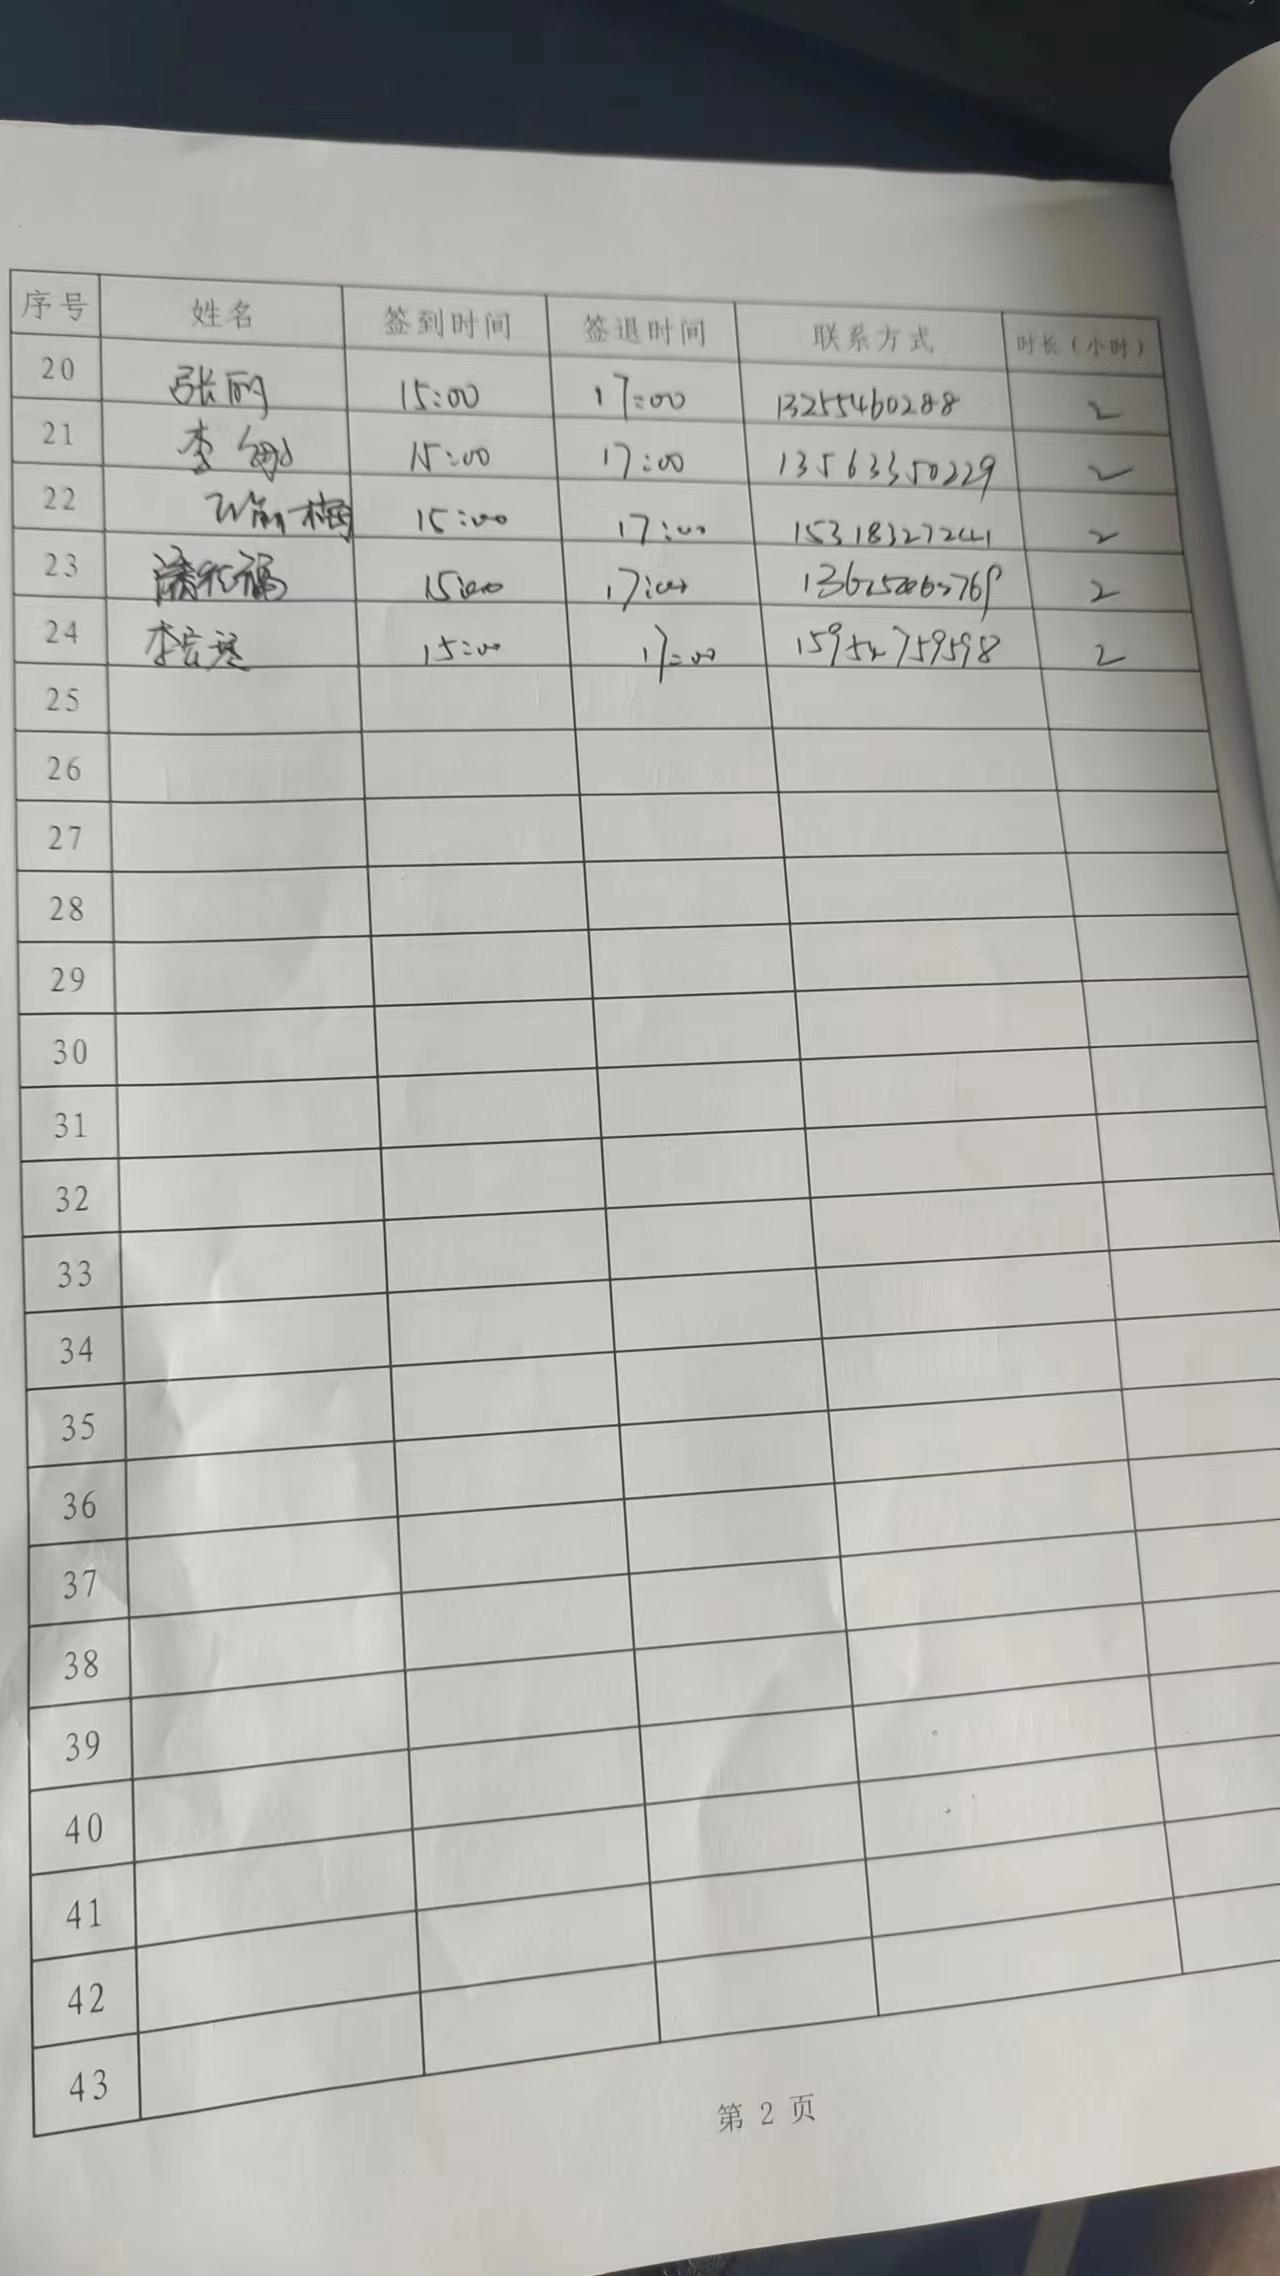 序号 姓名 签到时间 签退时间 联系方式 时长（小时）
20 张丽 15:00 17:00 13255460288 2
21 李 15:00 17:00 13563350229 2
22 15:00 17:00 15318327241 2
23 15:00 17:00 2
24 李宏 15:00 17:00 15954759598 2
25
26
27
28
29
30
31
32
33
34
35
36
37
38
39
40
41
42
43
第 2 页